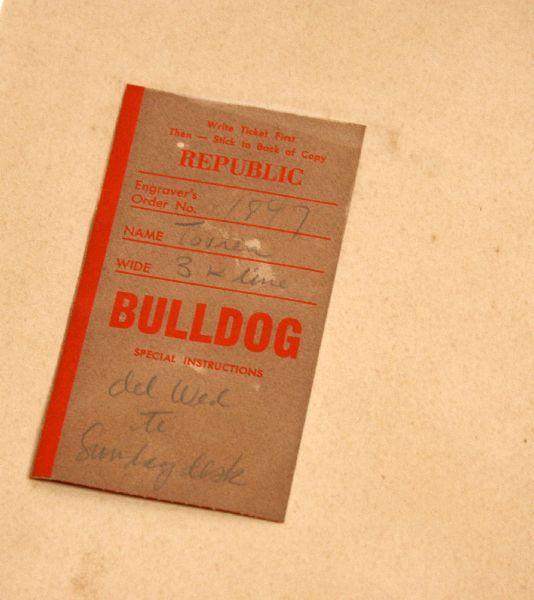 Write Ticket First
Then — Stick to Back of Copy
REPUBLIC
Engraver's
Order No. 1947
NAME
WIDE 3 line
BULLDOG
SPECIAL INSTRUCTIONS
del Wed
to
Sunday desk